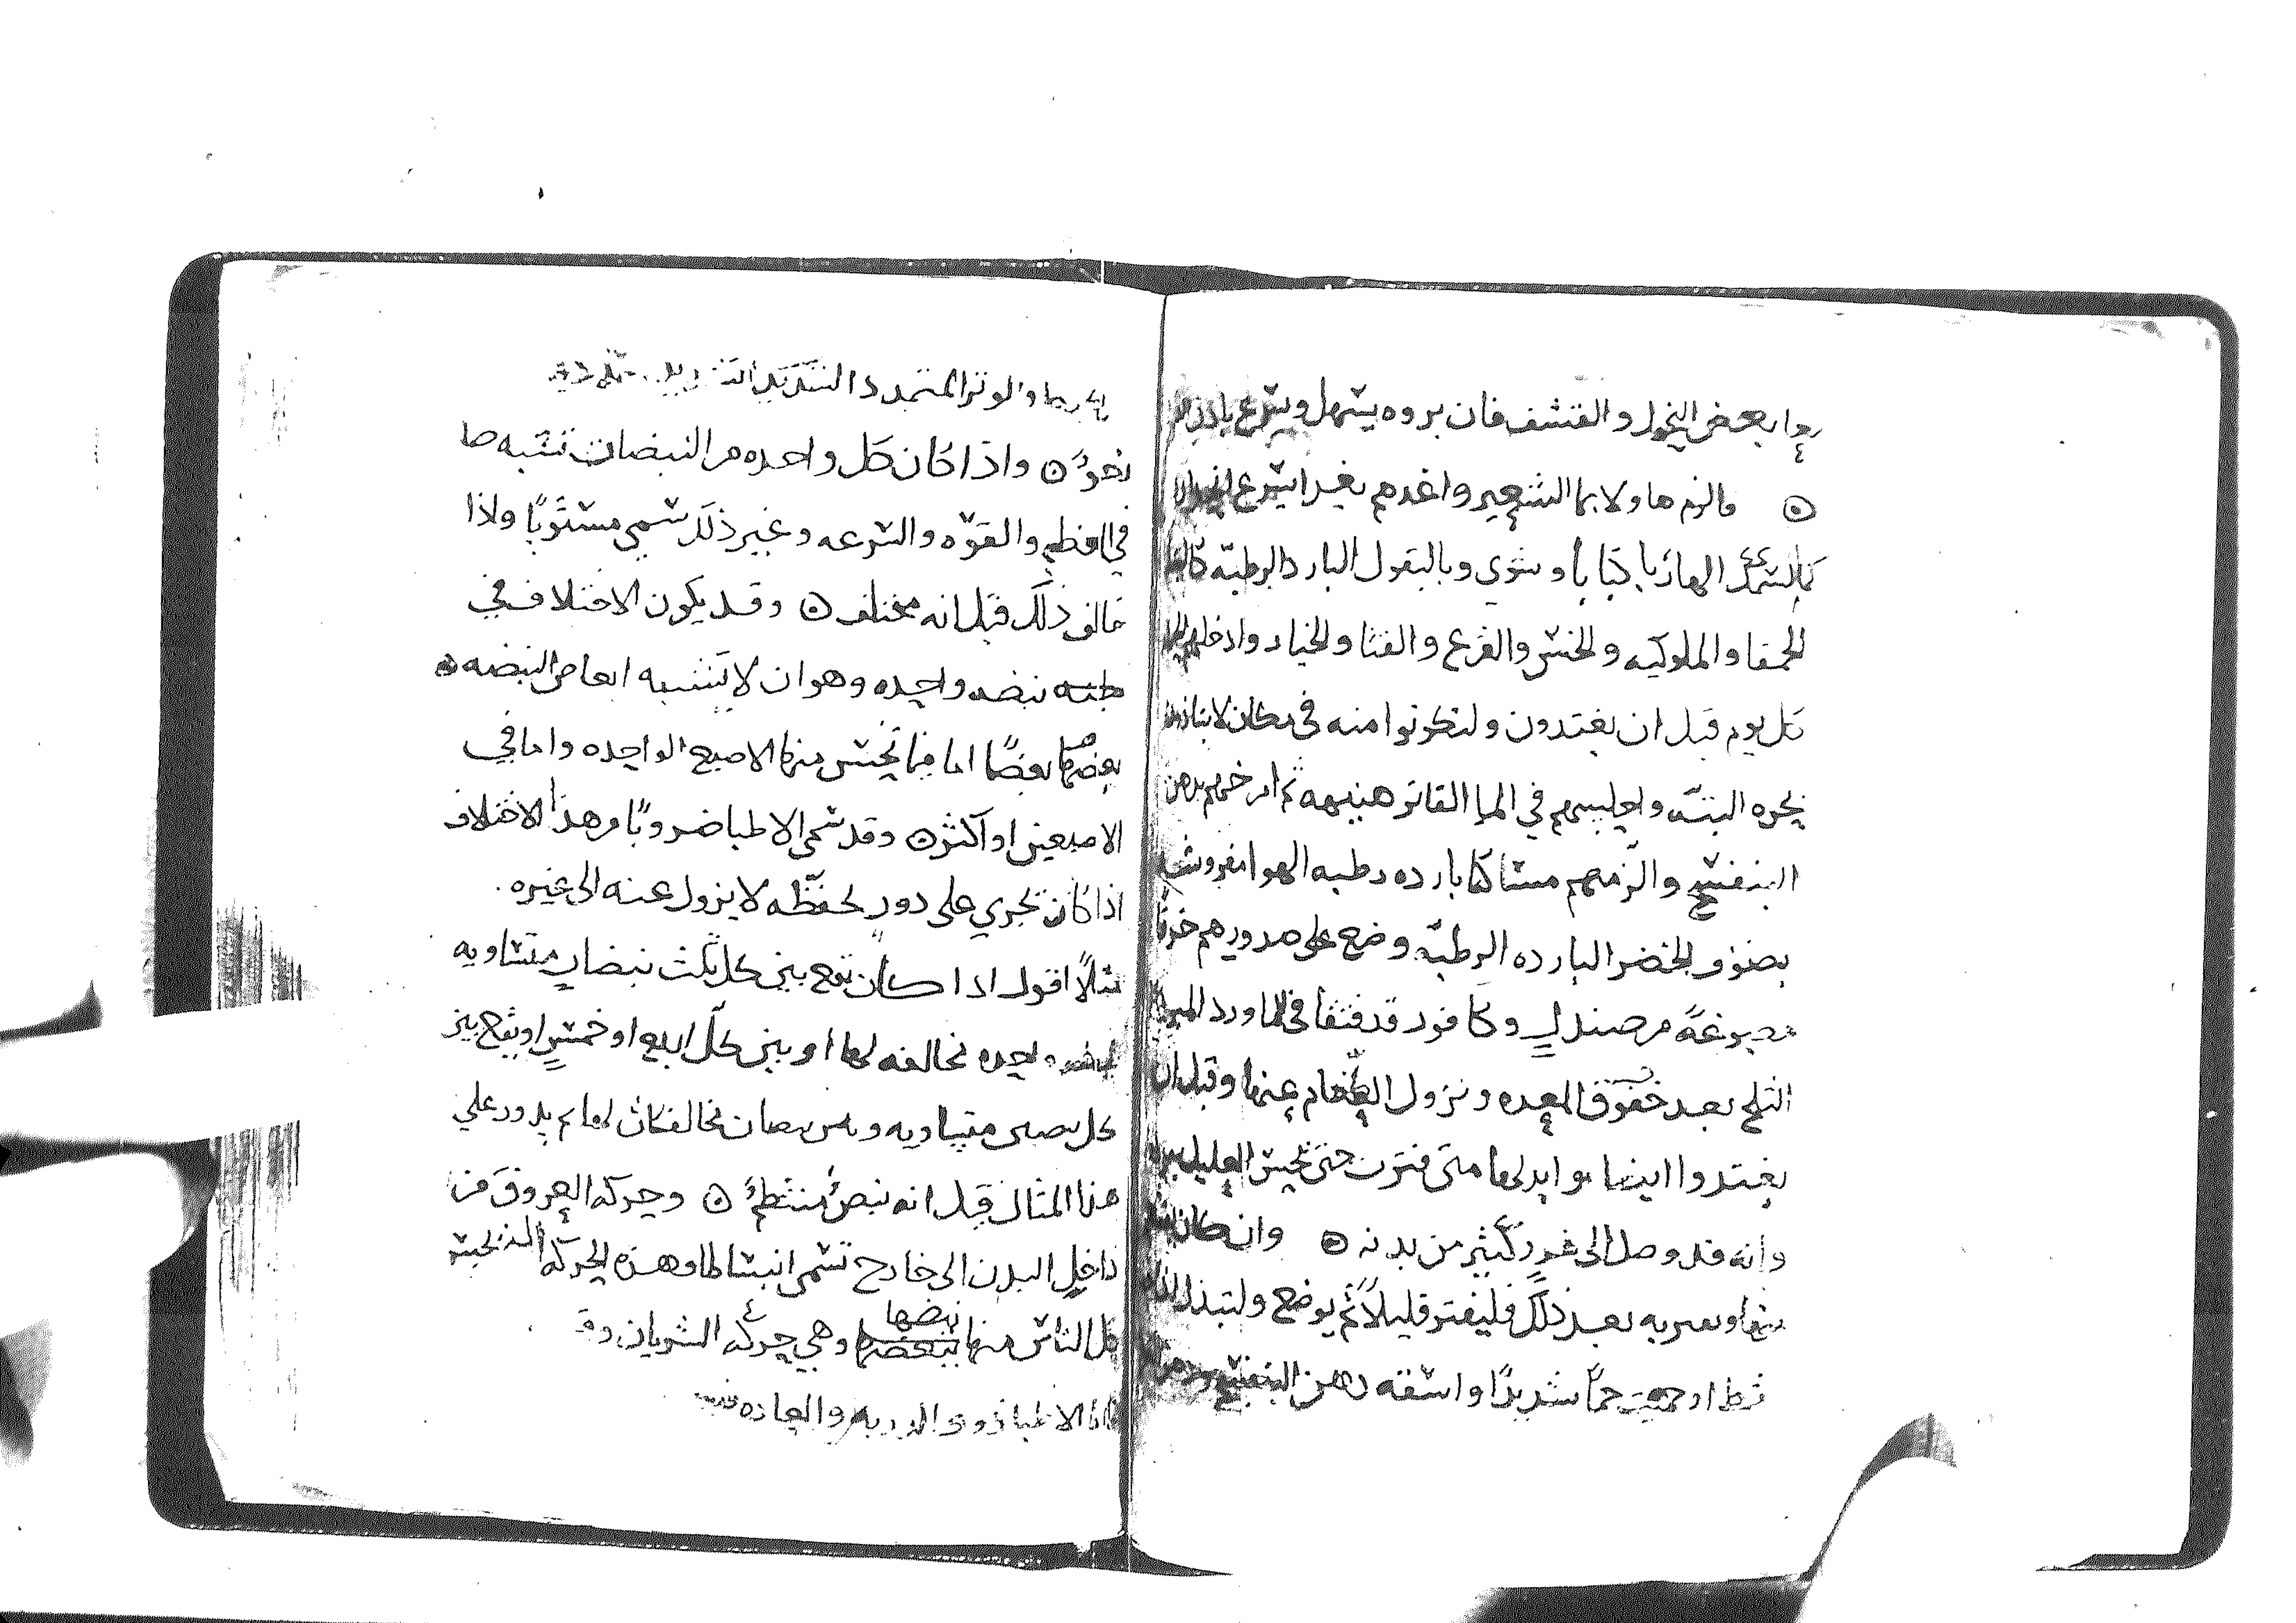 بعض النحول والقشف فان بروه يسهل ويسرع باذن
۞ والزمها ولا بما الشعير واغدهم بغدا يسرع
كالسمك الهازبا كبابا وشوي وبالبقول البارده الرطبه
الحمقا والملوكيه والخس والقرع والقثا والخيار وادخلهم
كل يوم قبل ان يغتدون وليكونوا منه في مكان لا يتاذون
بحره البته واجلسهم في الما الفاتر هنيهه ثم امرخهم بدهن
البنفسج والزمهم مساكنا بارده رطبه الهوا مفروشه
بصنوف الخضر البارده الرطبه وضع على صدورهم خرقا
مصبوغه من صندل وكافور قد فتقا في الماورد المبرد
الثلج بعد خفوق المعده ونزول الطعام عنها وقبل ان
يغتدوا ايضا وابدلها متى فترت حتى يحس العليل ببرد
وانه قد وصل الى غور كثير من بدنه ۞ وان كان
بعد ذلك فليفتر قليلا ثم يوضع ولتبدل
او حميت حما شديدا واسقه دهن البنفسج
والوتر المتمدد التمديد الشديد
نحو ۞ واذا كان كل واحده من النبضات تشبه صا
في العظم والقوه والسرعه وغير ذلك سمي مستويا واذا
خالف ذلك قيل انه مختلف ۞ وقد يكون الاختلاف في
نبضه واحده وهو ان لا تشبه ابعاض النبضه ۞
بعضها بعضا اما فيما تحس منها الاصبع الواحده واما في
الاصبعين او اكثر ۞ وقد سمى الاطبا ضروبا من هذا الاختلاف
اذا كان تجري على دور يحفظه لا يزول عنه الى غيره
مثلا اقول اذا كان تقع بين كل ثلث نبضات متساويه
واحده مخالفه لها او بين كل اربع او خمس او يقع بين
كل نبضتين متساويه نبضتان مخالفتان لهما ثم يدور على
هذا المثال قيل انه نبض منتظم ۞ وحركه العروق من
داخل البدن الى خارج تسمى انبساطا وهذه الحركه التي تحس
كل الناس منها نبضها وهي حركه الشريان
الاطبا ذوو الدربه والعاده